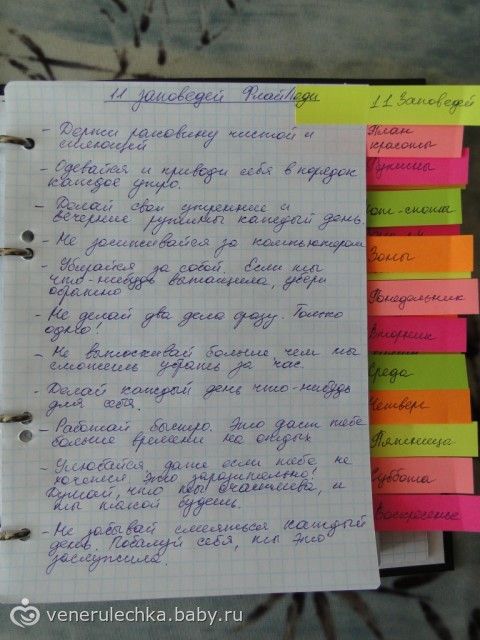 11 заповедей Флайледи
- Держи раковину чистой и
сияющей
- Одевайся и приводи себя в порядок
каждое утро.
- Делай свои утренние и
вечерние рутины каждый день.
- Не засиживайся за компьютером
- Убирайся за собой. Если ты
что-нибудь вытащила, убери
обратно
- Не делай два дела сразу. Только
одно!
- Не вытаскивай больше, чем ты
сможешь убрать за час.
- Делай каждый день что-нибудь
для себя.
- Работай быстро. Это даст тебе
больше времени на отдых
- Улыбайся, даже если тебе не
хочется. Это заразительно!
Думай, что ты счастлива, и
ты такой будешь.
- Не забывай смеяться каждый
день. Побалуй себя, ты это
заслужила.
11 Заповедей
План
красоты
Рутины
Зоны
Понедельник
Вторник
Среда
Четверг
Пятница
Суббота
Воскресенье
venerulechka.baby.ru